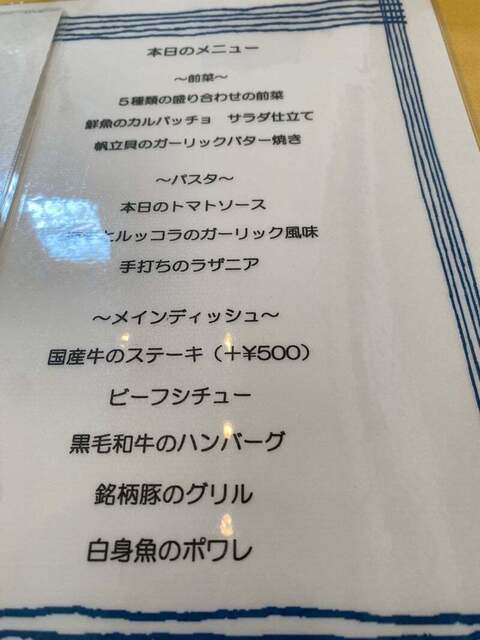 本日のメニュー
～前菜～
5種類の盛り合わせの前菜
鮮魚のカルパッチョ　サラダ仕立て
帆立貝のガーリックバター焼き
～パスタ～
本日のトマトソース
とルッコラのガーリック風味
手打ちのラザニア
～メインディッシュ～
国産牛のステーキ（＋¥500）
ビーフシチュー
黒毛和牛のハンバーグ
銘柄豚のグリル
白身魚のポワレ